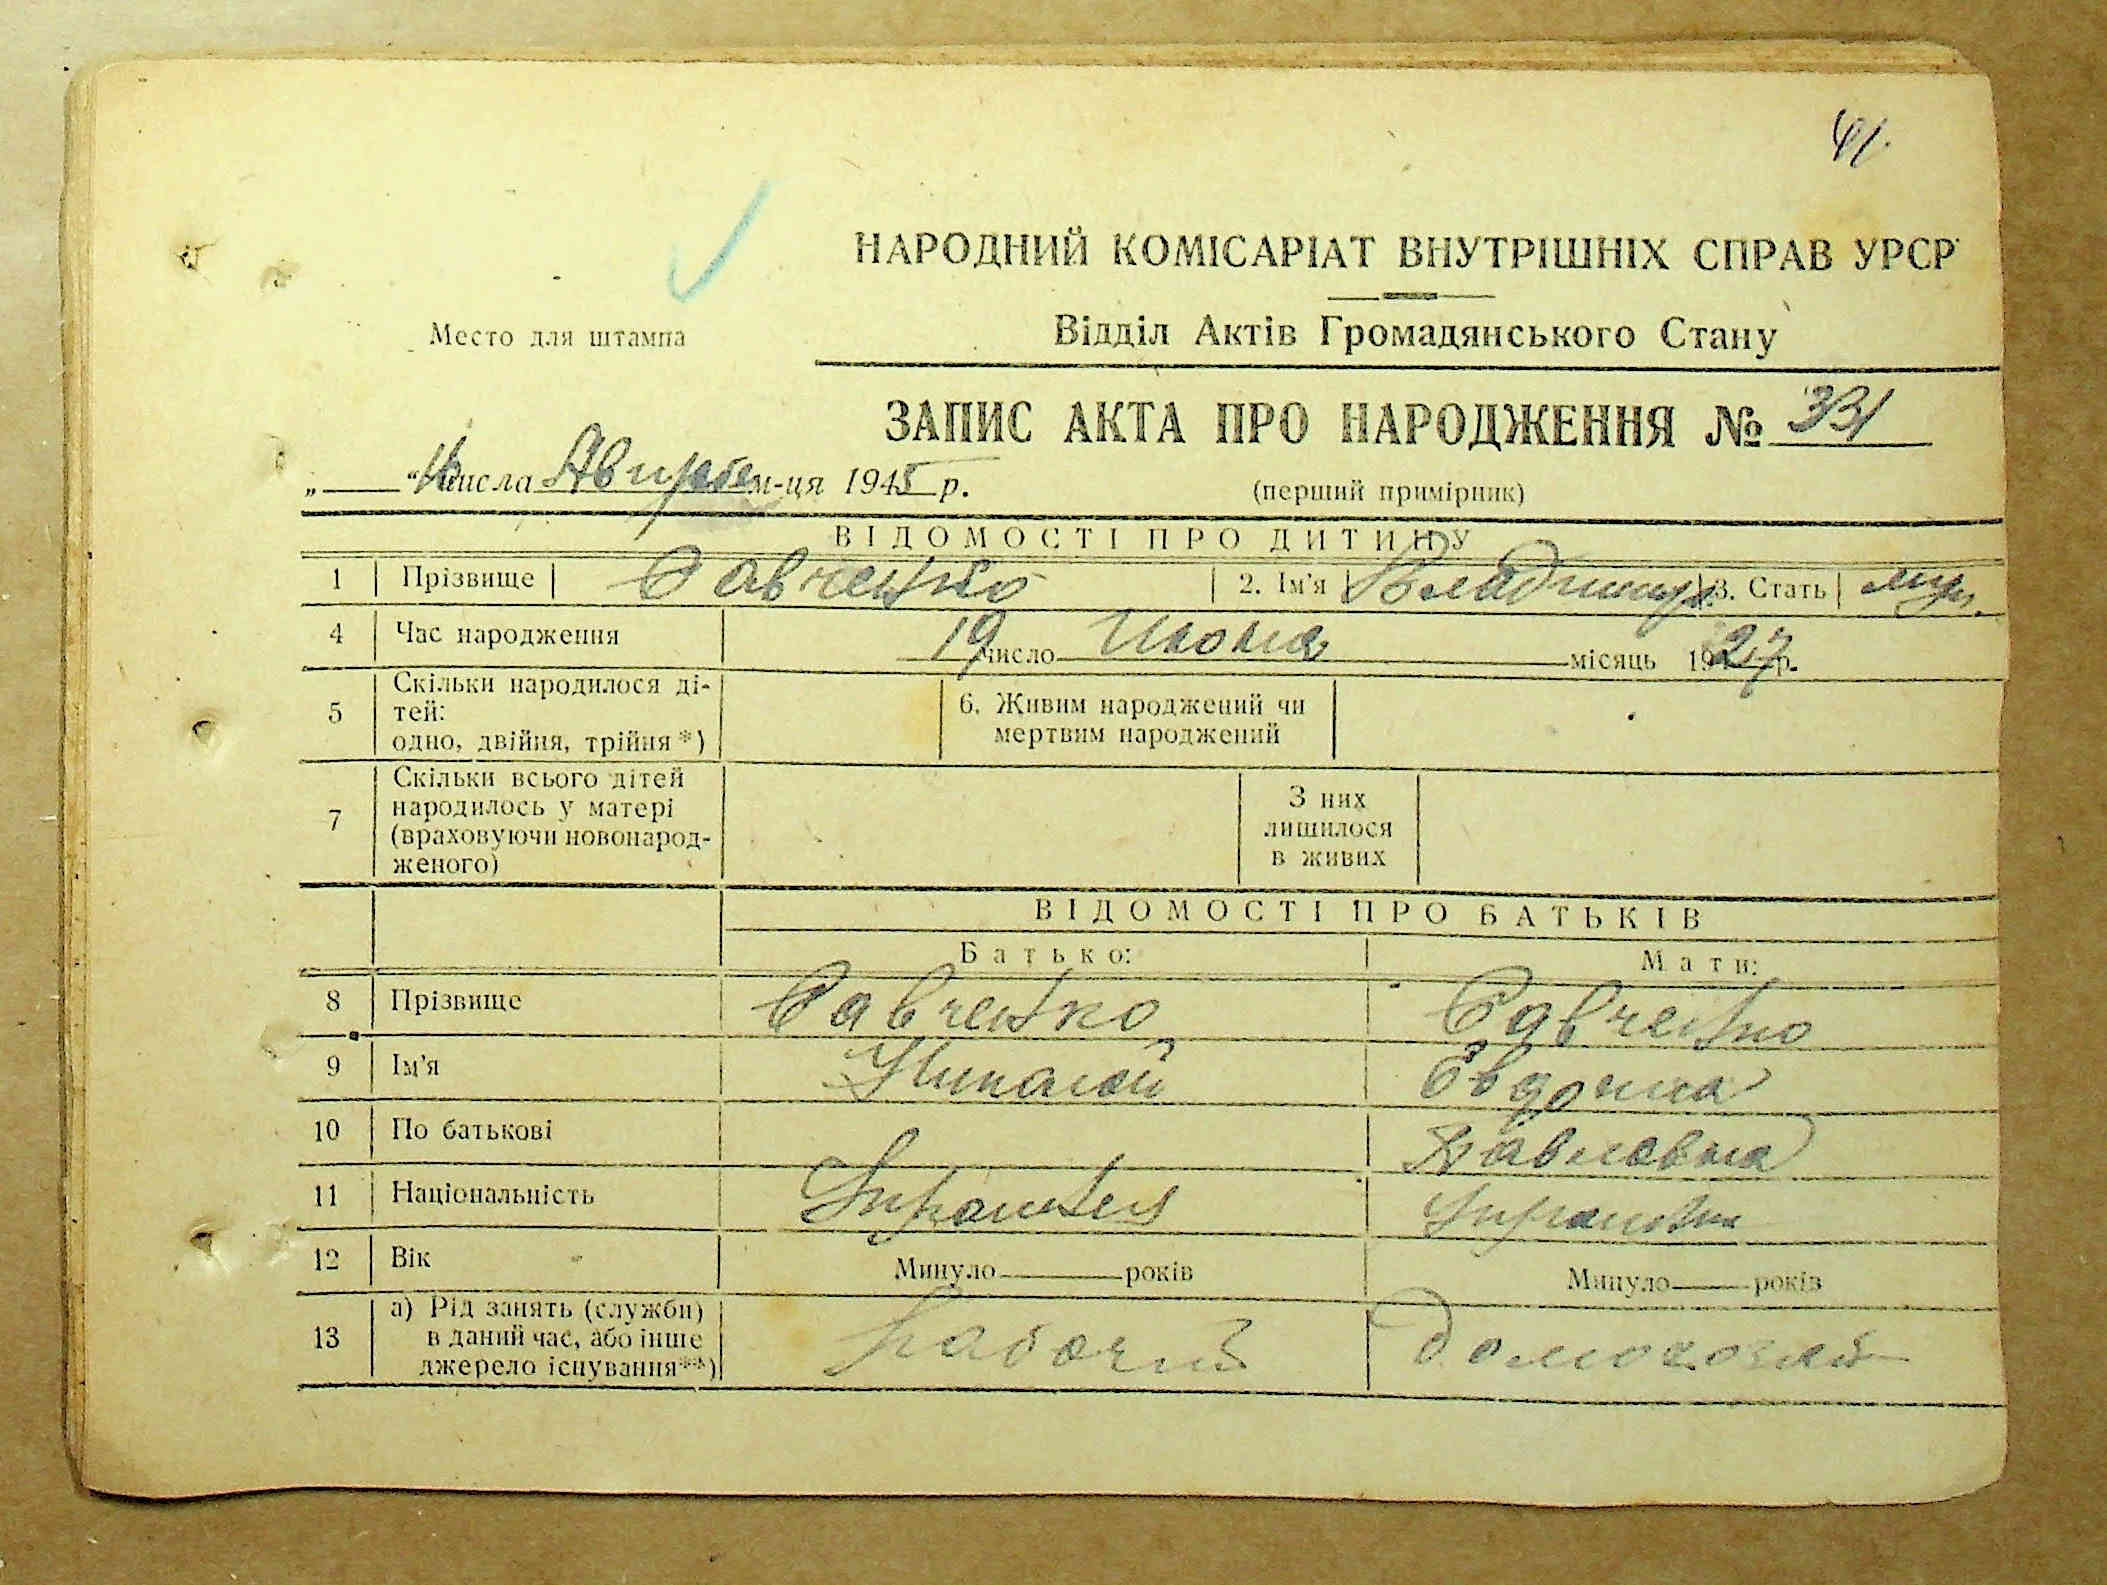 41.
НАРОДНИЙ КОМІСАРІАТ ВНУТРІШНІХ СПРАВ УРСР
Место для штампа
Відділ Актів Громадянського Стану
ЗАПИС АКТА ПРО НАРОДЖЕННЯ № 331
„ “ числа м-ця 1945 р.
(перший примірник)
ВІДОМОСТІ ПРО ДИТИНУ
1 Прізвище Савченко 2. Ім'я Владимир 3. Стать муж.
4 Час народження 19 число Июня місяць 1927 р.
5 Скільки народилося ді-
тей:
одно, двійня, трійня*)
6. Живим народжений чи
мертвим народжений
7 Скільки всього дітей
народилось у матері
(враховуючи новонарод-
женого)
З них
лишилося
в живих
ВІДОМОСТІ ПРО БАТЬКІВ
Батько: Мати:
8 Прізвище Савченко Савченко
9 Ім'я Николай Евдокия
10 По батькові Павловна
11 Національність Украинец Украинка
12 Вік Минуло років Минуло років
13 а) Рід занять (служби)
в даний час, або інше
джерело існування**)
рабочий домохозяй